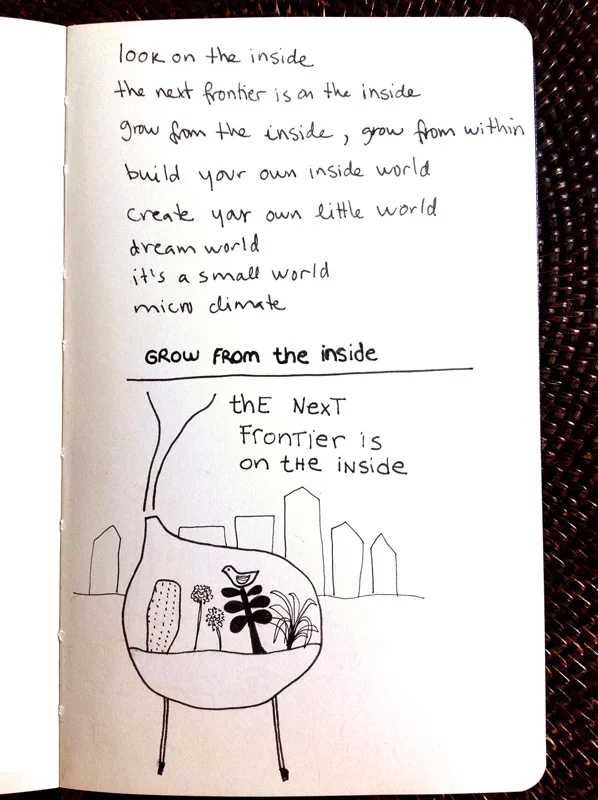 look on the inside
the next frontier is on the inside
grow from the inside, grow from within
build your own inside world
create your own little world
dream world
it's a small world
micro climate
GROW FROM the inside
thE NexT
FronTier is
on tHE iNSide